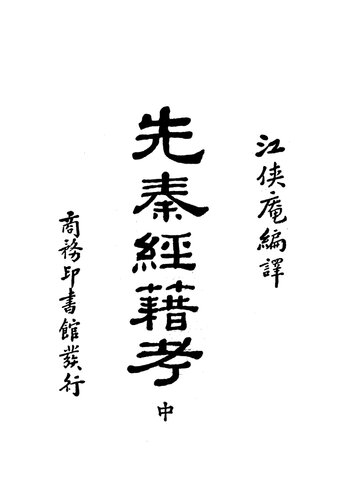 江俠庵編譯
先秦經藉考
中
商務印書館發行